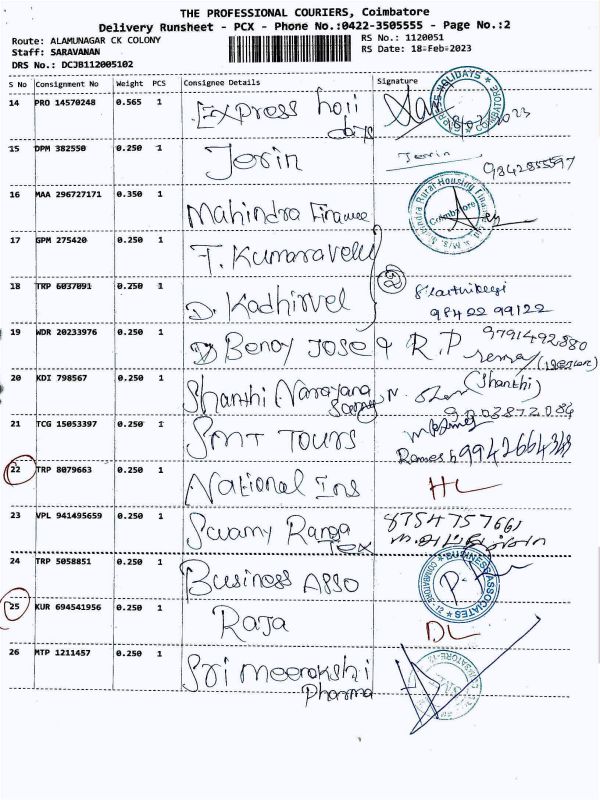 THE PROFESSIONAL COURIERS, Coimbatore
Delivery Runsheet - PCX - Phone No.:0422-3505555 - Page No.:2
Route: ALAMUNAGAR CK COLONY
Staff: SARAVANAN
DRS No.: DCJB112005102
RS No.: 1120051
RS Date: 18-Feb-2023
S No Consignment No Weight PCS Consignee Details Signature
14 PRO 14570248 0.565 1 Express holi
days
15 DPM 382550 0.250 1 Jerin Jerin 9842855597
16 MAA 296727171 0.350 1 Mahindra Finance
17 GPM 275420 0.250 1 T. Kumaravelu
18 TRP 6037091 0.250 1 D. Kadhirvel 2
98422 99122
19 WDR 20233976 0.250 1 Benoy Jose R.P 9791492880
20 KDI 798567 0.250 1 Shanthi Narayana
Samy N. (Shanthi)
9003872084
21 TCG 15053397 0.250 1 SMT TOURS
Ramesh 9942664348
22 TRP 8079663 0.250 1 National Ins HL
23 VPL 941495659 0.250 1 Swamy Ranga
Tex 8754757661
24 TRP 5058851 0.250 1 Business Asso
BUSINESS ASSOCIATES
25 KUR 694541956 0.250 1 Raja DL
26 MTP 1211457 0.250 1 Sri Meenakshi
Pharma